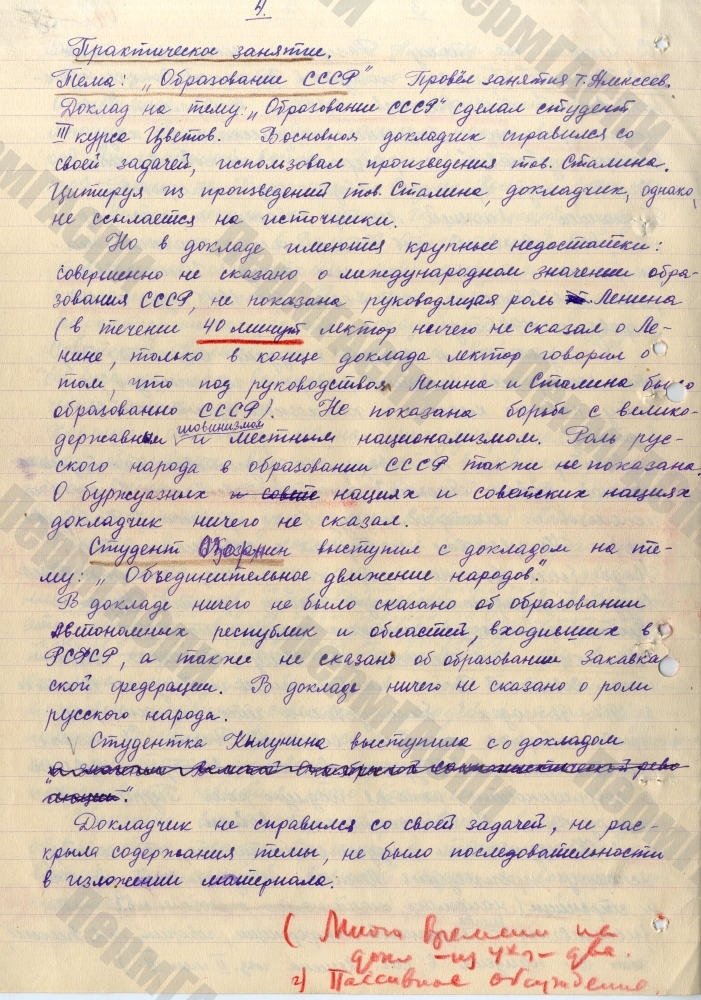 4.
Практическое занятие.
Тема: „Образование СССР" Провёл занятия т. Алексеев.
Доклад на тему: „Образование СССР" сделал студент
III курса Цветов. В основном докладчик справился со
своей задачей, использовал произведения тов. Сталина.
Цитируя из произведений тов. Сталина, докладчик, однако,
не ссылается на источники.
Но в докладе имеются крупные недостатки:
совершенно не сказано о международном значении обра-
зования СССР, не показана руководящая роль Ленина
(в течении 40 минут лектор ничего не сказал о Ле-
нине, только в конце доклада лектор говорил о
том, что под руководством Ленина и Сталина было
образованно СССР). Не показана борьба с велико-
державным шовинизмом и местным национализмом. Роль рус-
ского народа в образовании СССР также не показана.
О буржуазных и совете нациях и советских нациях
докладчик ничего не сказал.
Студент выступил с докладом на те-
му: „Объединительное движение народов".
В докладе ничего не было сказано об образовании
Автономных республик и областей, входивших в
РСФСР, а также не сказано об образовании Закавка
ской федерации. В докладе ничего не сказано о роли
русского народа.
Студентка Кылунина выступила с докладом
"о значении Великой Октябрьской социалистической рево
люции".
Докладчик не справился со своей задачей, не рас-
крыла содержания темы, не было последовательности
в изложении материала.
( Много времени на
докл - из 4х - два.
2) Пассивное обсуждение.
пермГАСПИ